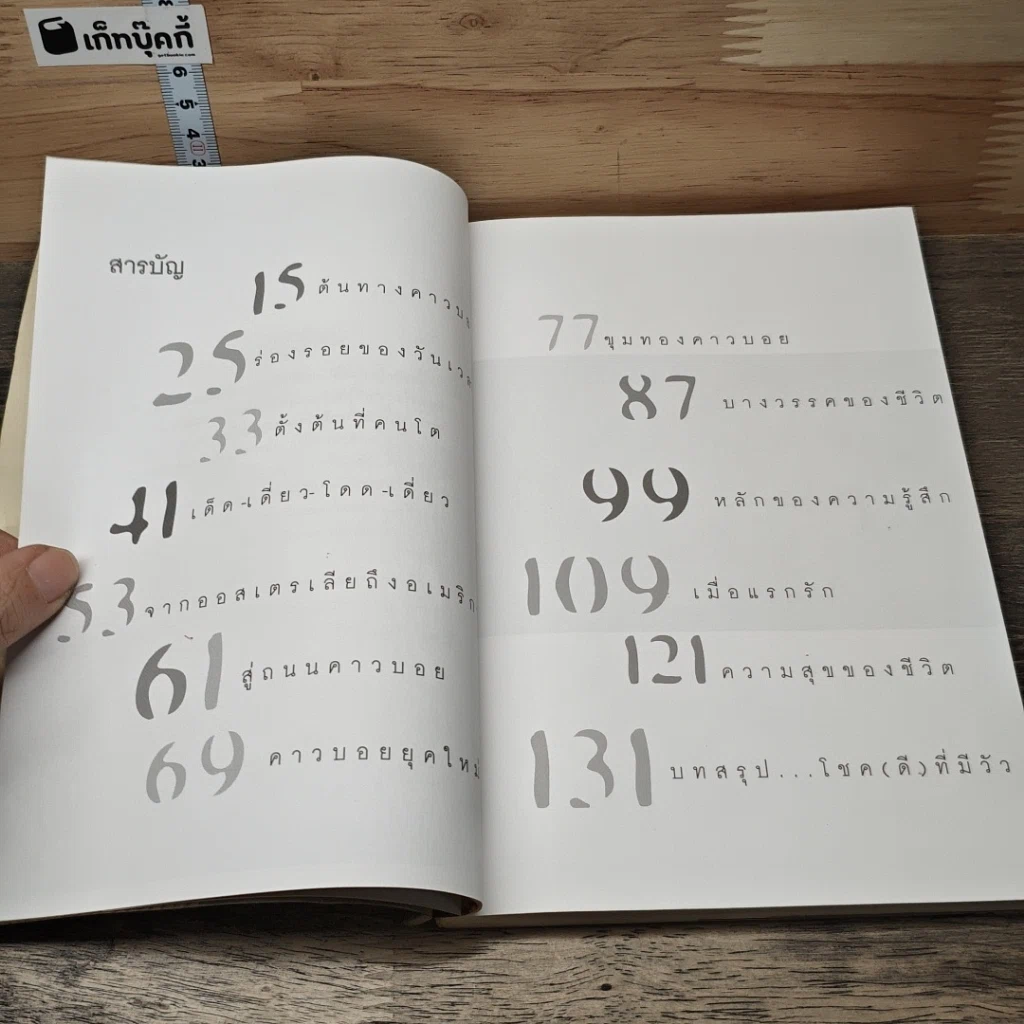 เก็ทบุ๊คกี้
6
5
4
3
สารบัญ
15 ต้นทางคาวบอย
25 ร่องรอยของวันเวลา
33 ตั้งต้นที่คนโต
41 เด็ด-เดี่ยว-โดด-เดี่ยว
53 จากออสเตรเลียถึงอเมริกา
61 สู่ถนนคาวบอย
69 คาวบอยยุคใหม่
77 ขุมทองคาวบอย
87 บางวรรคของชีวิต
99 หลักของความรู้สึก
109 เมื่อแรกรัก
121 ความสุขของชีวิต
131 บทสรุป...โชค(ดี)ที่มีวัว